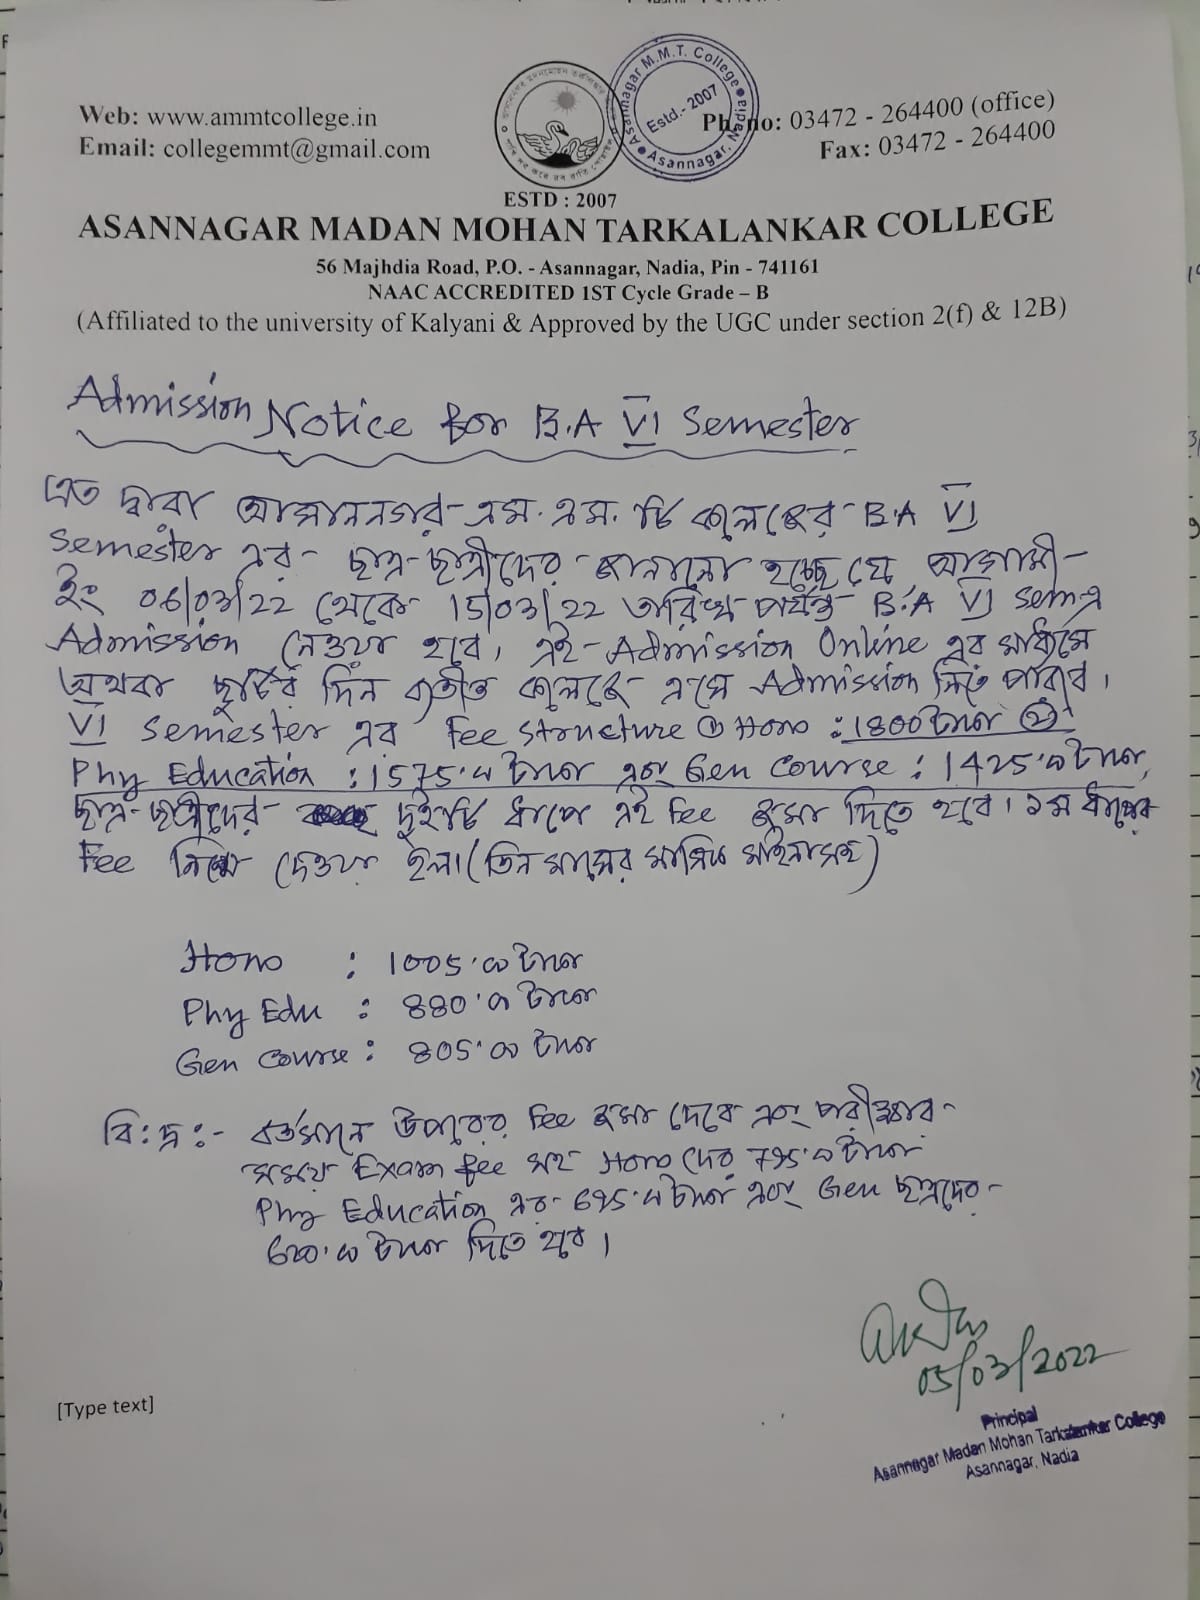 Web: www.ammtcollege.in
Email: collegemmt@gmail.com
Asannagar M.M.T. College
Estd.- 2007
Asannagar, Nadia
Ph. no: 03472 - 264400 (office)
Fax: 03472 - 264400
ESTD : 2007
ASANNAGAR MADAN MOHAN TARKALANKAR COLLEGE
56 Majhdia Road, P.O. - Asannagar, Nadia, Pin - 741161
NAAC ACCREDITED 1ST Cycle Grade – B
(Affiliated to the university of Kalyani & Approved by the UGC under section 2(f) & 12B)
Admission Notice for B.A VI Semester
এত দ্বারা আসাননগর এম. এম. টি কলেজের B.A VI
Semester এর ছাত্র-ছাত্রীদের জানানো হচ্ছে যে আগামী
ইং 06/03/22 থেকে 15/03/22 তারিখ পর্যন্ত B.A VI Sem এ
Admission নেওয়া হবে। এই Admission Online এর মাধ্যমে
অথবা ছুটির দিন ব্যতীত কলেজে এসে Admission নিতে পারবে।
VI Semester এর Fee Structure Hons : 1800 টাকা
Phy Education : 1575.00 টাকা এবং Gen Course : 1425.00 টাকা,
ছাত্র-ছাত্রীদের দুইটি ধাপে এই Fee জমা দিতে হবে। ১ম ধাপের
Fee নিম্নে দেওয়া হল। (তিন মাসের মাসিক মাহিনা সহ)
Hons : 1005.00 টাকা
Phy Edu : 880.00 টাকা
Gen Course : 805.00 টাকা
বি:দ্র:- বর্তমানে উপরের Fee জমা দেবে এবং পরীক্ষার
সময়ে Exam fee সহ Hons দের 795.00 টাকা
Phy Education এর 695.00 টাকা এবং Gen ছাত্রদের
620.00 টাকা দিতে হবে।
05/03/2022
Principal
Asannagar Madan Mohan Tarkalankar College
Asannagar, Nadia
[Type text]